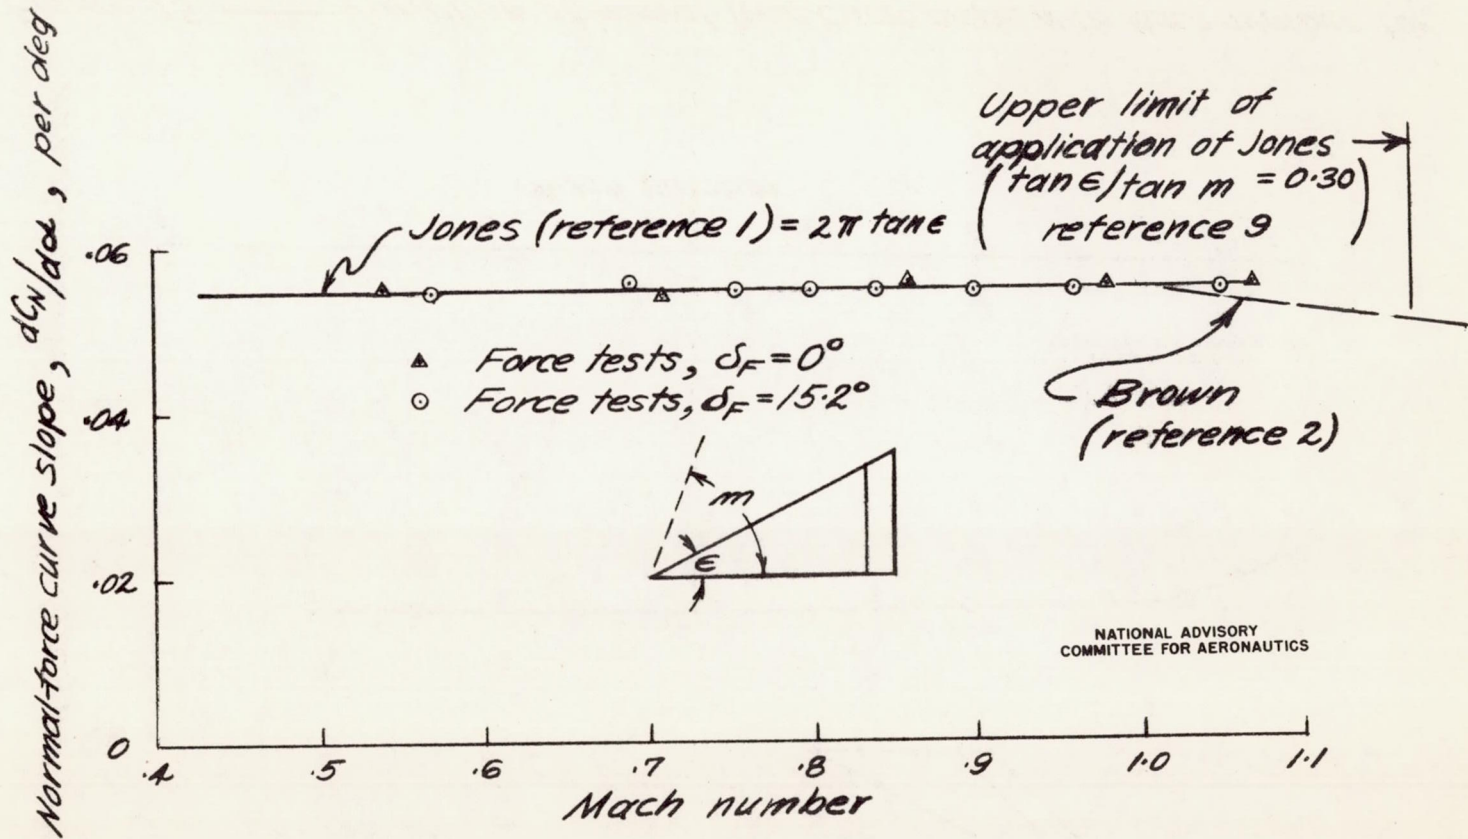 Normal-force curve slope, dCN/dα, per deg
Upper limit of
application of Jones
(tan ϵ/tan m = 0.30)
reference 9
Jones (reference 1) = 2π tan ϵ
.06
.04
.02
0
Force tests, δF = 0°
Force tests, δF = 15.2°
Brown
(reference 2)
m
ϵ
NATIONAL ADVISORY
COMMITTEE FOR AERONAUTICS
.4 .5 .6 .7 .8 .9 1.0 1.1
Mach number